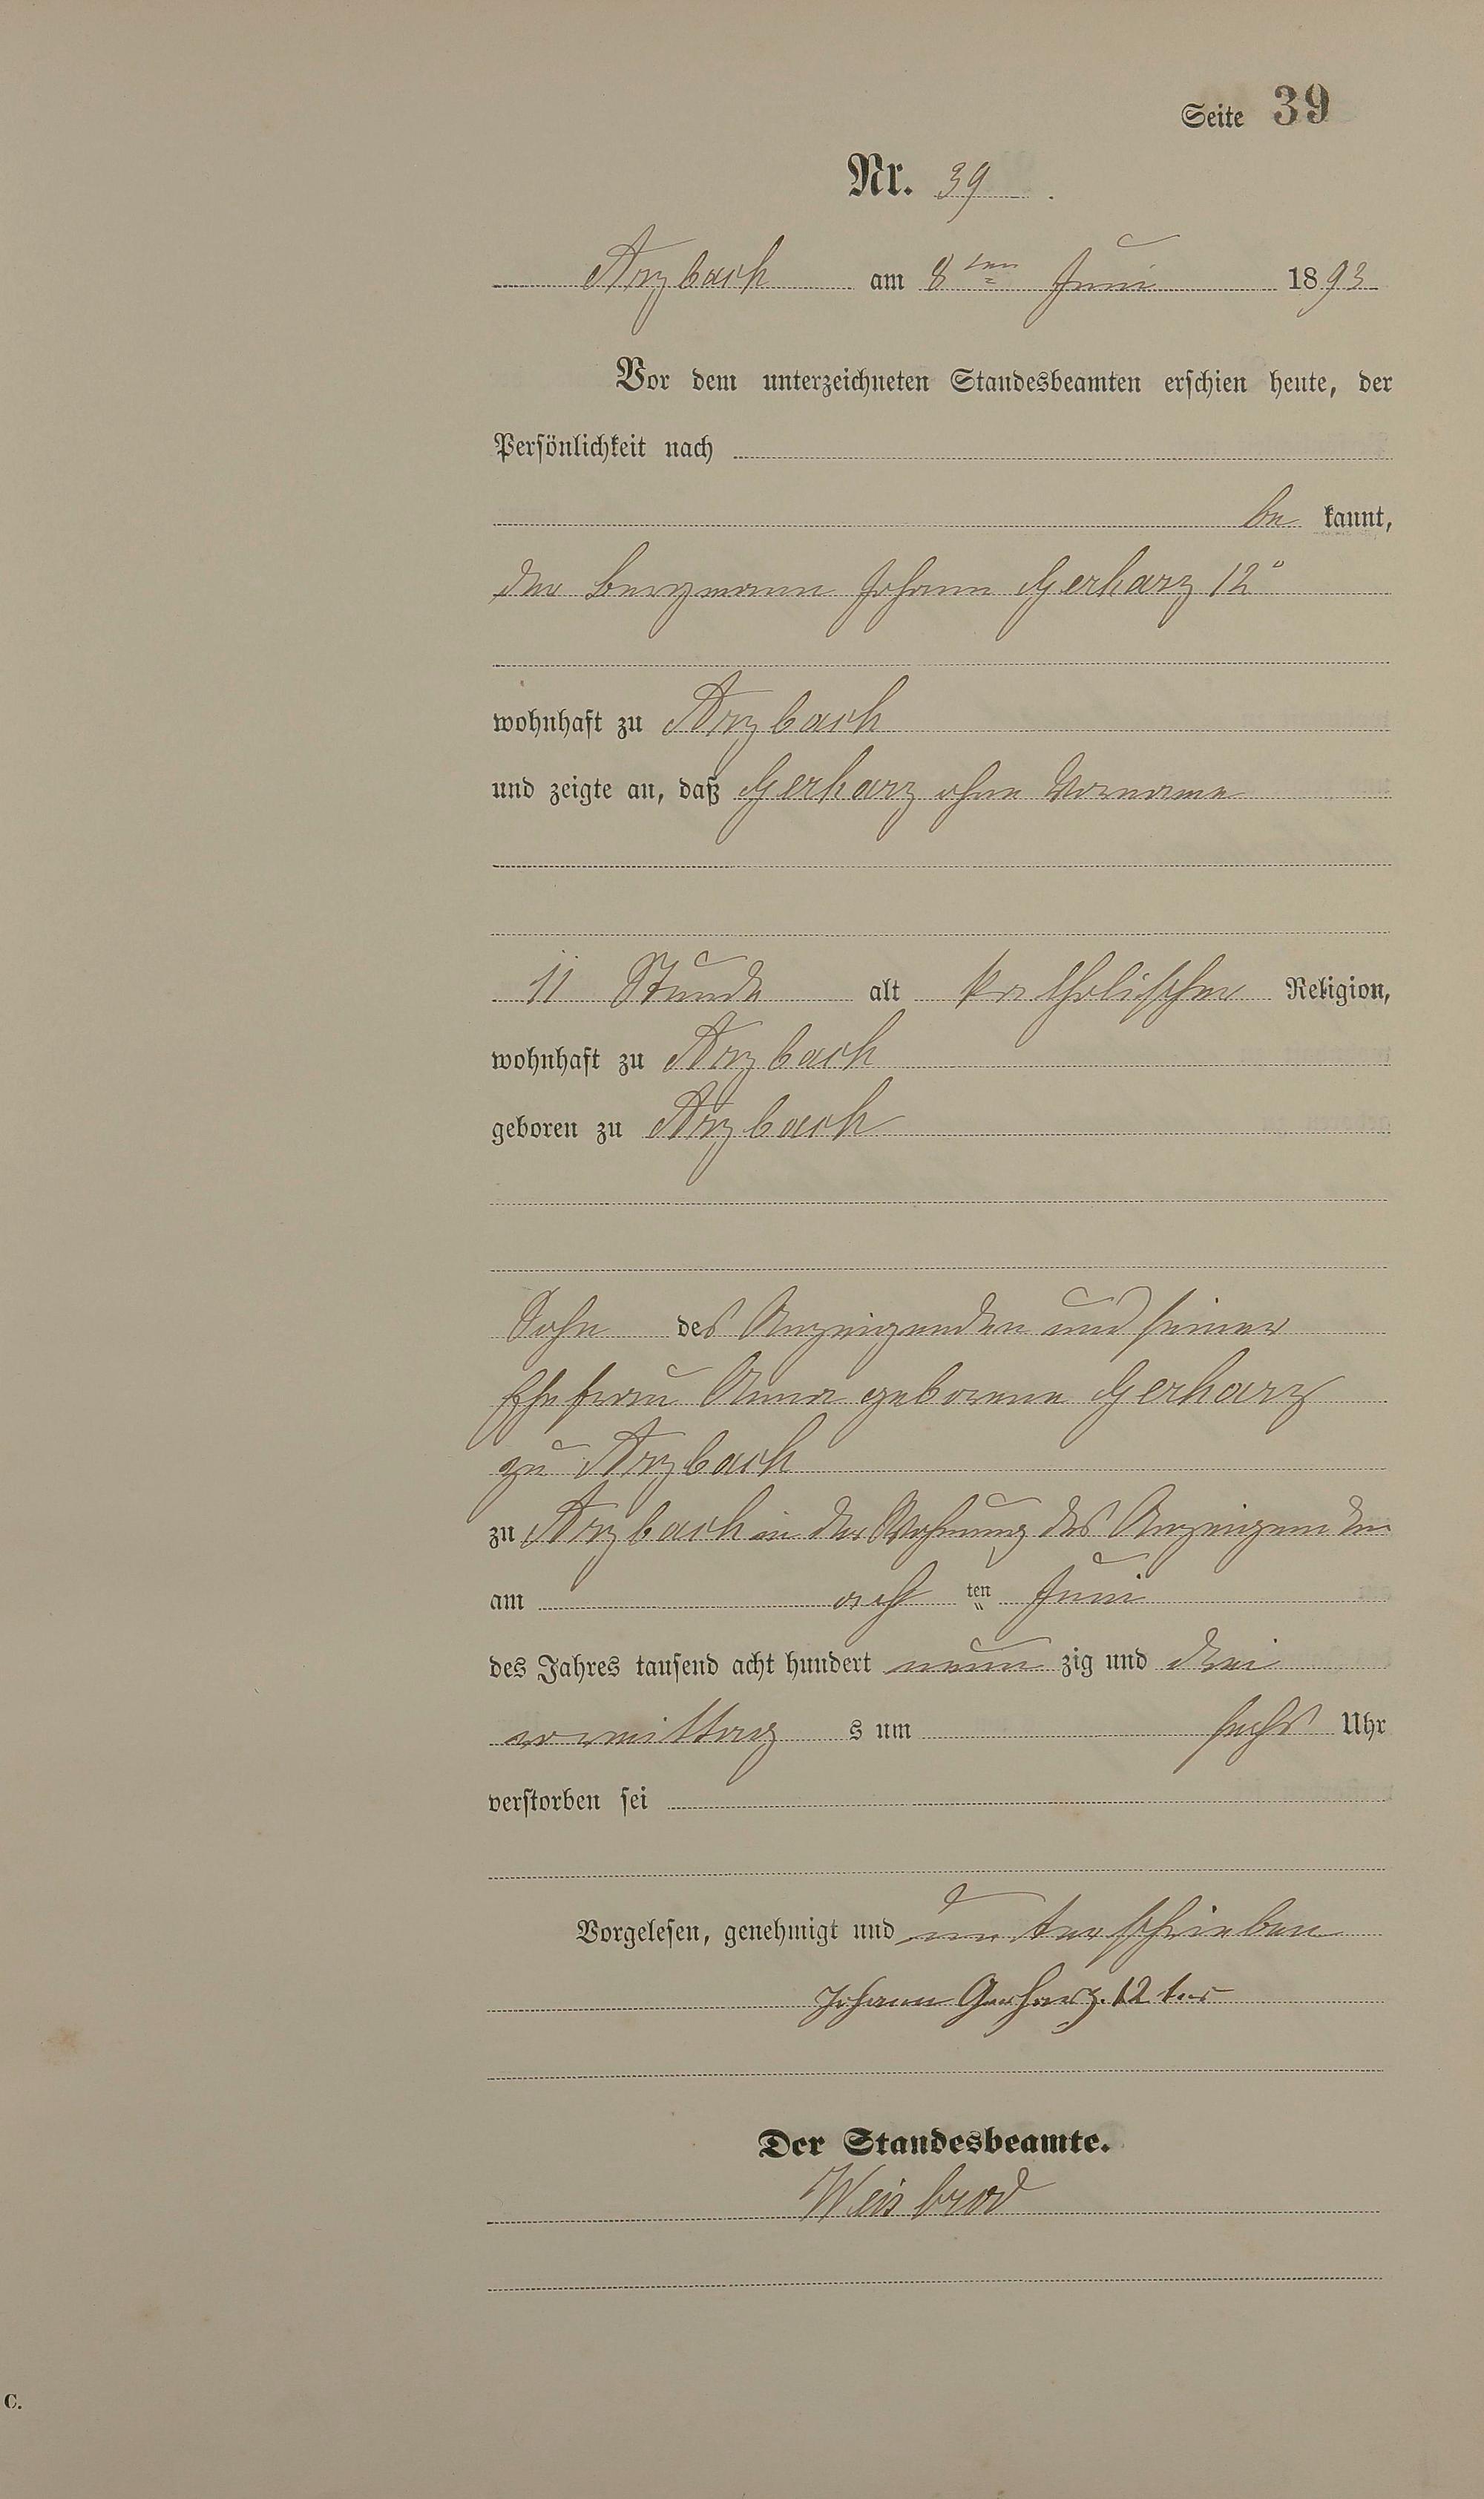 Seite 39
Nr. 39.
Arzbach am 8ten Juni 1893
Vor dem unterzeichneten Standesbeamten erschien heute, der
Persönlichkeit nach
be kannt,
der Bergmann Johann Gerharz 12°
wohnhaft zu Arzbach
und zeigte an, daß Gerharz ohne Vorname
11 Stunde alt katholischer Religion,
wohnhaft zu Arzbach
geboren zu Arzbach
Sohn des Anzeigenden und seiner
Ehefrau Anna geborene Gerharz
zu Arzbach
zu Arzbach in der Wohnung des Anzeigenden
am acht ten Juni
des Jahres tausend acht hundert neun zig und drei
vormittag s um sechs Uhr
verstorben sei
Vorgelesen, genehmigt und unterschrieben
Johann Gerharz. 12 ter
Der Standesbeamte.
Weisbrod
C.